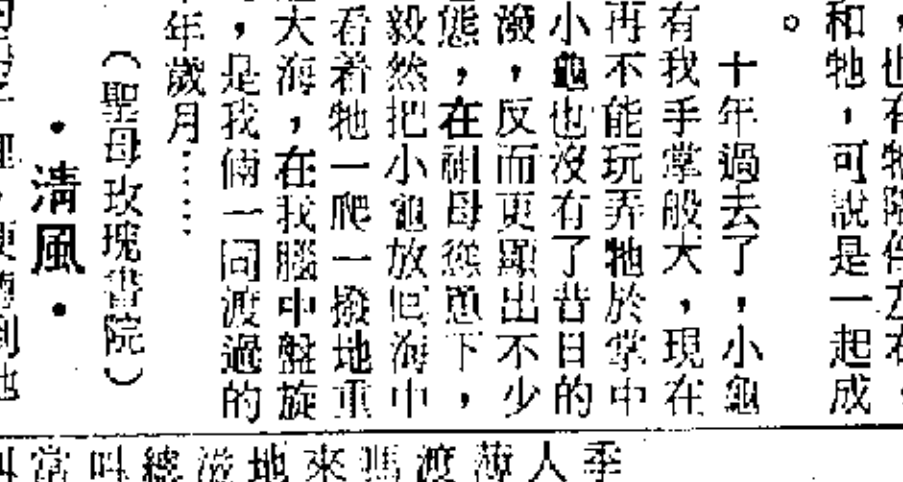 ，也有牠陪伴左右，
和牠，可說是一起成
。
十年過去了，小龜
有我手掌般大，現在
再不能玩弄牠於掌中
小龜也沒有了昔日的
潑，反而更顯出不少
態，在祖母慫恿下，
毅然把小龜放回海中
看着牠一爬一撥地重
大海，在我腦中盤旋
，是我倆一同渡過的
年歲月……
（聖母玫瑰書院）
・清風・
季人薄渡嗎來地滋總叫當叫